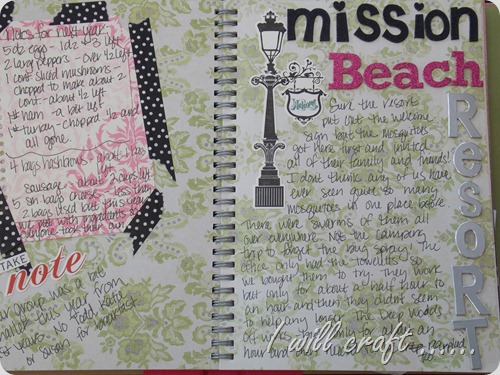 Notes for next year:
5 dz eggs - 1dz + 3 left
2 lang peppers - over 1/2 left
1 cont sliced mushrooms -
chopped to make about 2
cont - about 1/2 left
1# ham - a bit left
1# turkey - chopped 1/2 and
all gone
bags hashbrowns - about 1 bag
left
sausage about 2 cups left
5 son bags cheese - less than
2 bags used but this year
we put
everyone took their own
TAKE
note
our group was a bit
smaller this year from
last years. No Todd, Katie
or Susan for breakfast
mission
Beach
RESORT
Welcome
Sure the resort
put out the welcome
sign but the mosquitoes
got here first and invited
all of their family and friends!
I dont think any of us have
ever seen quite so many
mosquitoes in one place before.
There were swarms of them all
over everywhere. Not the camping
trip to forget the bug spray! The
office only had the towelettes so
we bought them to try. They work
but only for about a half hour to
an hour and then they didnt seem
to help any longer. The Deep Woods
off works but only for about an
hour and
I will craft .....